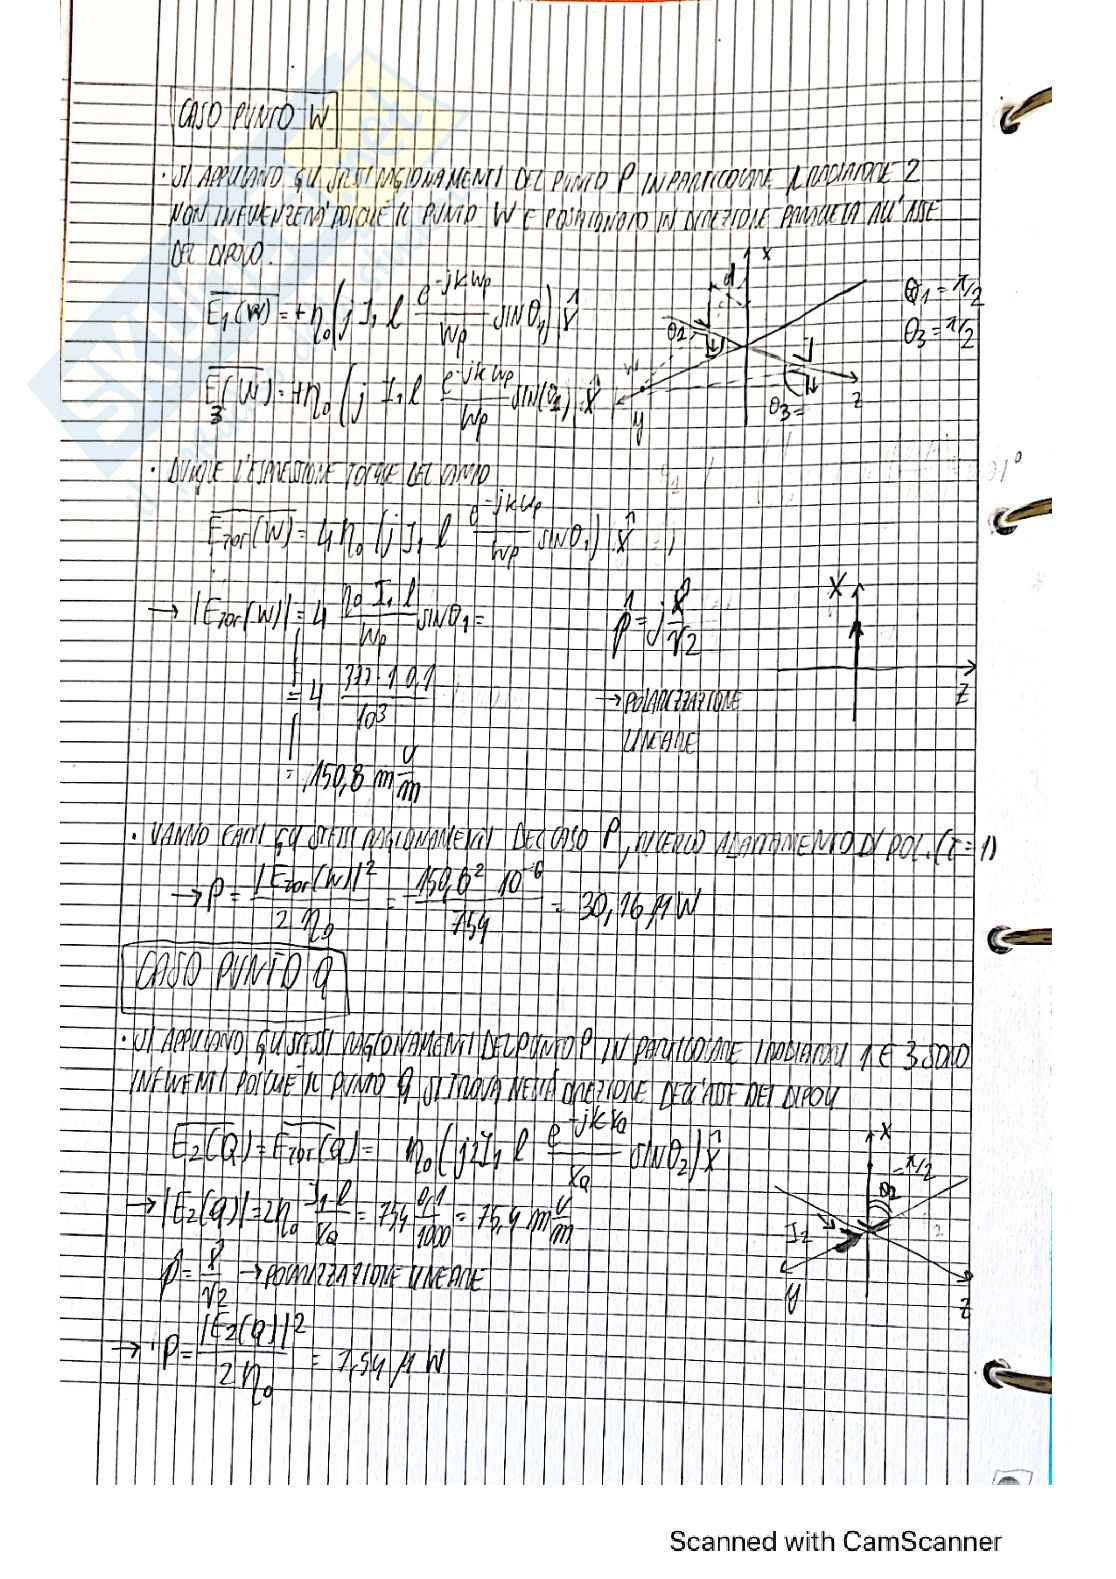 CASO PUNTO W
· SI APPLICANO GLI STESSI RAGIONAMENTI DEL PUNTO P IN PARTICOLARE IL RADIATORE 2
NON INFLUENZERA' POICHÉ IL PUNTO W E POSIZIONATO IN DIREZIONE PARALLELA ALL'ASSE
DEL DIPOLO.
E₁(W) = +η₀ (j I₁ l e^-jkWp / Wp sinθ₁) x̂
E₃(W) = +η₀ (j I₁ l e^-jkWp / Wp sin(θ₂) x̂
x
d
θ₂
W
y
θ₃=
z
θ₁ = π/2
θ₃ = π/2
· DUNQUE L'ESPRESSIONE TOTALE DEL CAMPO
E_TOT(W) = 4 η₀ (j I₁ l e^-jkWp / Wp sinθ₁) x̂
→ |E_TOT(W)| = 4 η₀ I₁ l / Wp sinθ₁ =
p̂ = j x̂ / √2
X
Z
= 4 377 · 1 0,1 / 10³
→ POLARIZZAZIONE
LINEARE
= 150,8 m V/m
· VANNO FATTI GLI STESSI RAGIONAMENTI DEL CASO P, ADATTAMENTO DI POL. (τ = 1)
→ P = |E_TOT(W)|² / 2 η₀ = 150,8² 10⁻⁶ / 754 = 30,16 μW
CASO PUNTO Q
· SI APPLICANO GLI STESSI RAGIONAMENTI DEL PUNTO P IN PARTICOLARE I RADIATORI 1 E 3 SONO
INFLUENTI POICHÉ IL PUNTO Q SI TROVA NELLA DIREZIONE DELL'ASSE DEI DIPOLI
E₂(Q) = E_TOT(Q) = η₀ (j2I₁ l e^-jkXQ / XQ sinθ₂) x̂
→ |E₂(Q)| = 2η₀ I₁ l / XQ = 754 0,1 / 1000 = 75,4 m V/m
x
= π/2
θ₂
I₂
y
z
p̂ = x̂ / √2 → POLARIZZAZIONE LINEARE
→ P = |E₂(Q)|² / 2 η₀ = 7,54 μW
Scanned with CamScanner